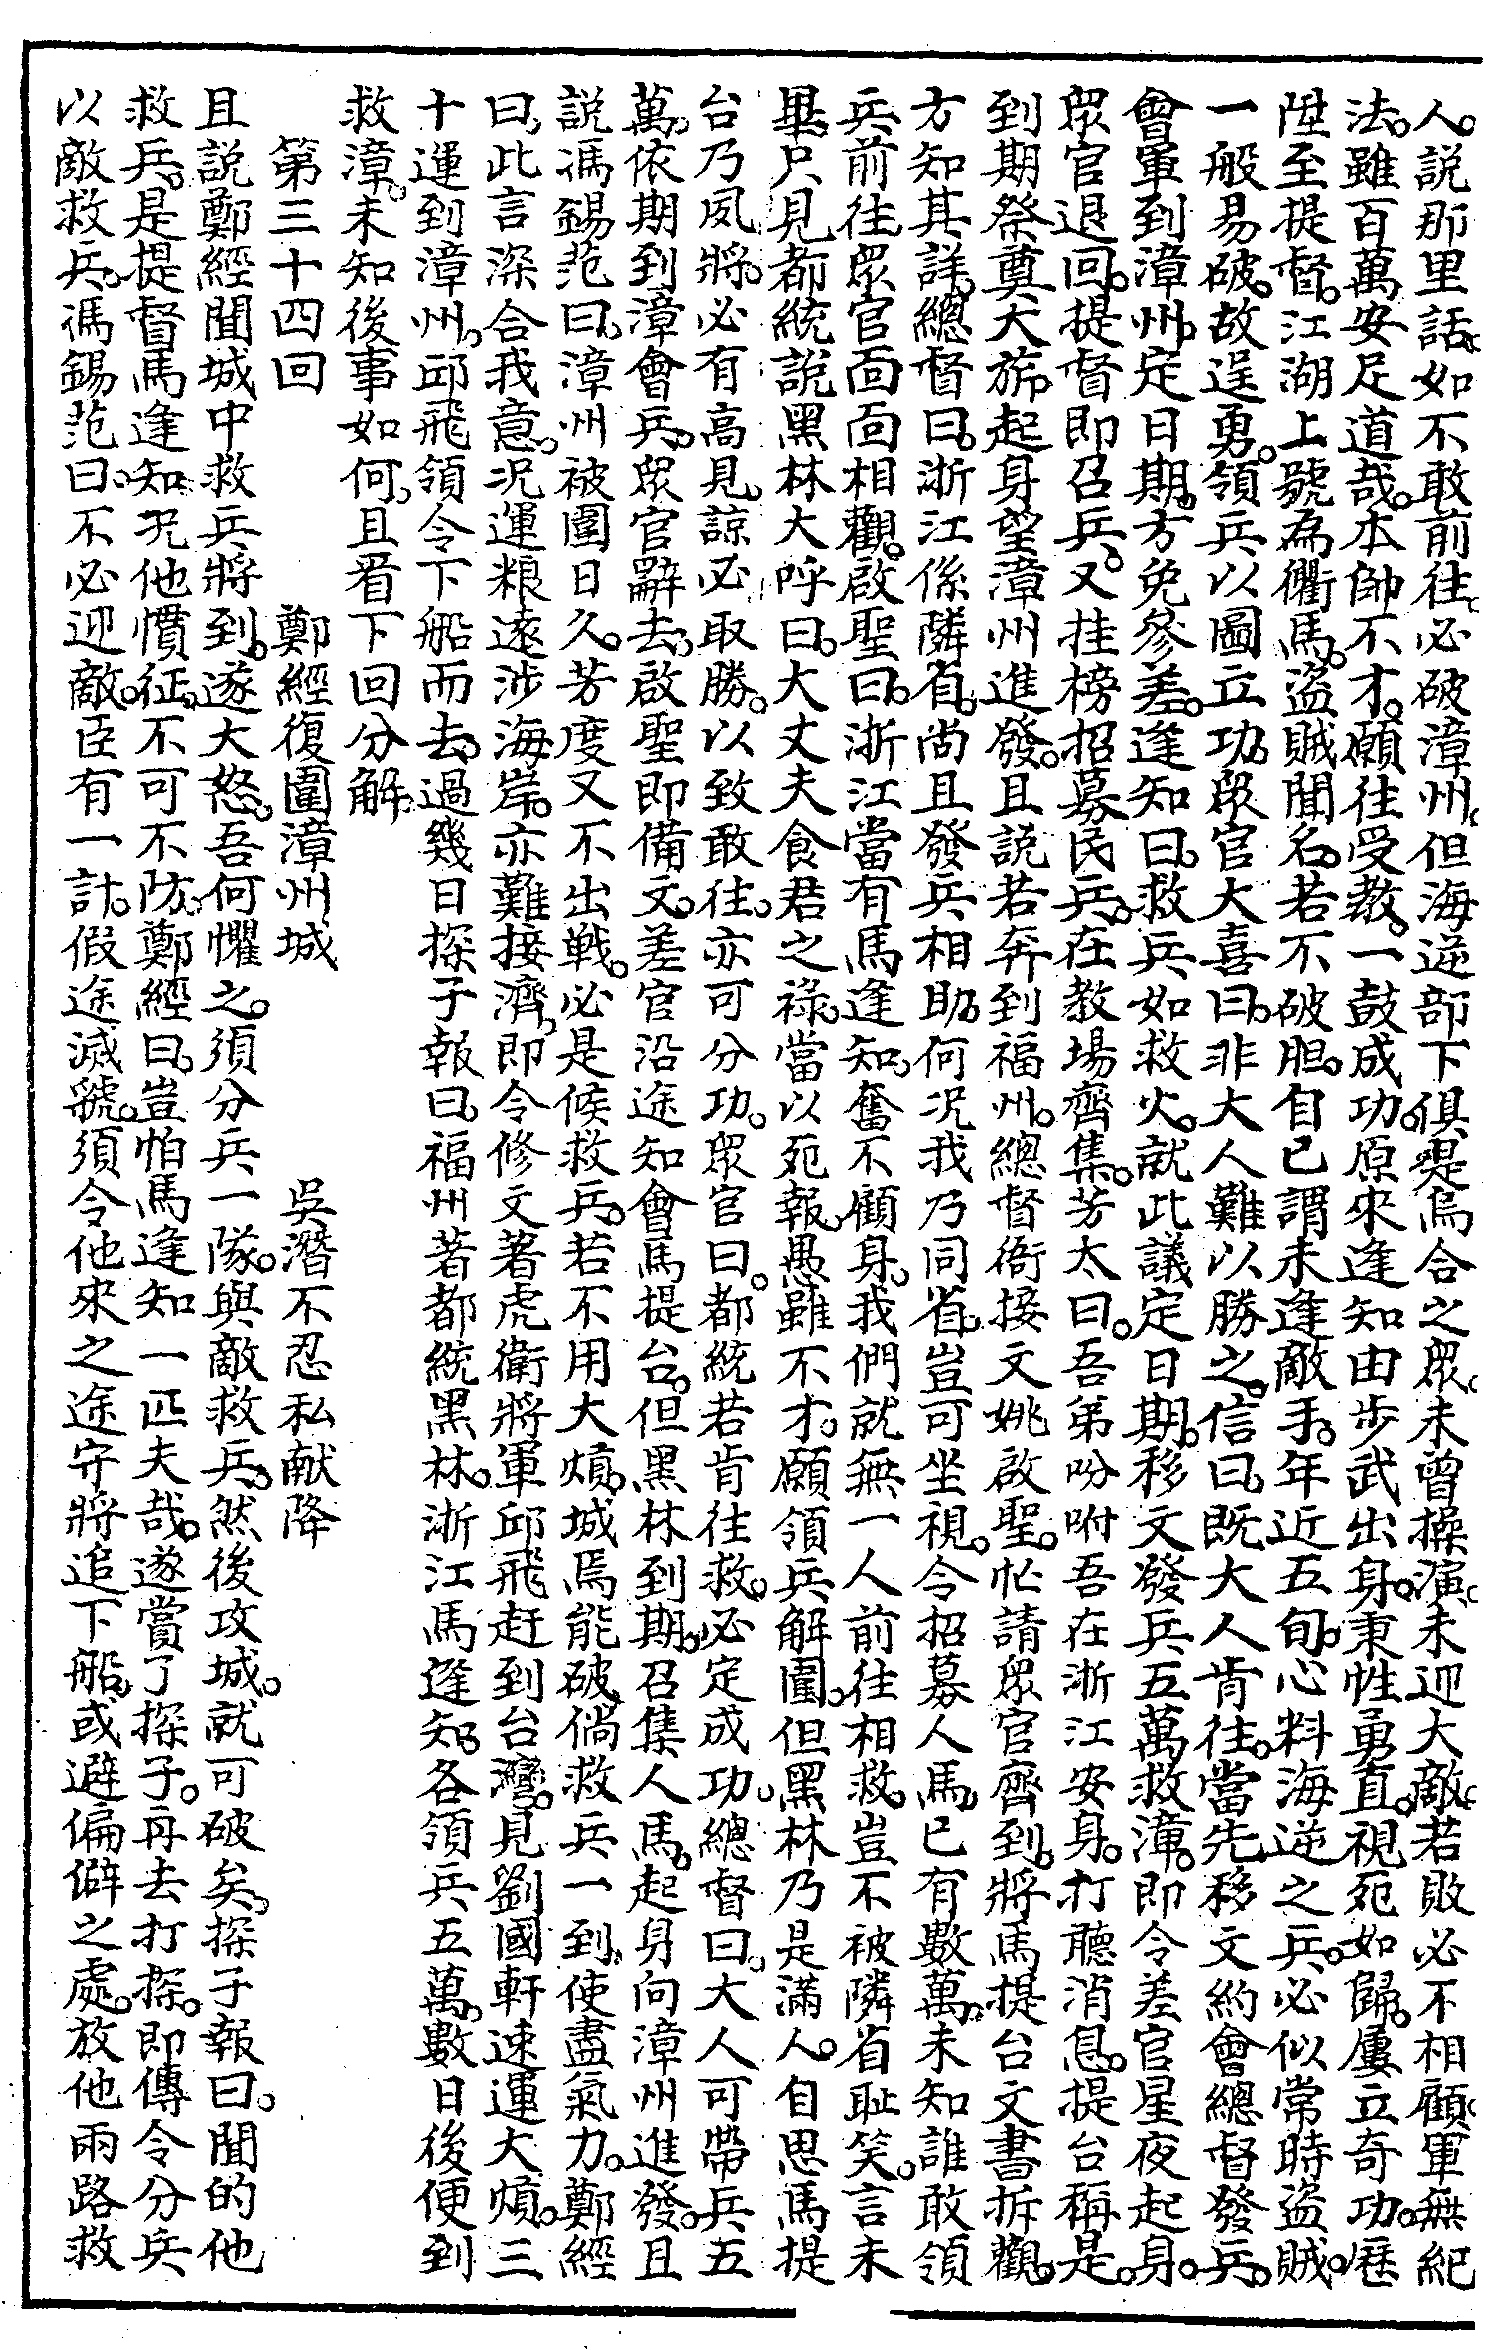 人。説那里話。如不敢前往。必破漳州。但海逆部下。俱是烏合之眾。未曾操演。未迎大敵。若敗必不相顧。軍無紀
法。雖百萬安足道哉。本帥不才。願往受教。一鼓成功。原來逢知由步武出身。秉性勇直。視死如歸。屢立奇功。歷
陞至提督。江湖上號為衢馬。盜賊聞名。若不破胆。自已謂未逢敵手。年近五旬。心料海逆之兵。必似常時盜賊。
一般易破。故逞勇。領兵以圖立功。眾官大喜曰。非大人難以勝之。信曰。既大人肯往。當先移文約會總督發兵。
會軍到漳州。定日期。方免參差。逢知曰。救兵如救火。就此議定日期。移文發兵五萬救漳。即令差官星夜起身。
眾官退回。提督即召兵。又挂榜招募民兵。在教場齊集。芳太曰。吾弟吩咐吾在浙江安身。打聽消息。提台稱是。
到期祭奠大旂。起身望漳州進發。且説若奔到福州。總督衙接文姚啟聖。忙請眾官齊到。將馬提台文書拆觀。
方知其詳。總督曰。浙江係隣省。尚且發兵相助。何況我乃同省。豈可坐視。令招募人馬。已有數萬。未知誰敢領
兵前往。眾官面面相觀。啟聖曰。浙江當有馬逢知。奮不顧身。我們就無一人前往相救。豈不被隣省耻笑。言未
畢。只見都統説黑林大呼曰。大丈夫食君之祿。當以死報。愚雖不才。願領兵解圍。但黑林乃是滿人。自思馬提
台乃夙將。必有高見。諒必取勝。以致敢往。亦可分功。眾官曰。都統若肯往救。必定成功。總督曰。大人可帶兵五
萬。依期到漳會兵。眾官辭去。啟聖即備文。差官沿途知會馬提台。但黑林到期。召集人馬。起身向漳州進發。且
説馮錫范曰。漳州被圍日久。芳度又不出戰。必是候救兵。若不用大熕。城焉能破。倘救兵一到。使盡氣力。鄭經
曰。此言深合我意。況運粮遠涉海岸。亦難接濟。即令修文著虎衛將軍邱飛赶到台灣。見劉國軒速運大熕。三
十運到漳州。邱飛領令下船而去。過幾日探子報曰。福州著都統黑林。浙江馬逢知。各領兵五萬。數日後便到
救漳。未知後事如何。且看下回分解。
第三十四回　鄭經復圍漳州城　吳潛不忍私献降
且説鄭經聞城中救兵將到。遂大怒。吾何懼之。須分兵一隊。與敵救兵。然後攻城。就可破矣。探子報曰。聞的他
救兵。是提督馬逢知。況他慣征。不可不防。鄭經曰。豈怕馬逢知一匹夫哉。遂賞了探子。再去打探。即傳令分兵
以敵救兵。馮錫范曰。不必迎敵。臣有一計。假途滅虢。須令他來之途守將追下船。或避偏僻之處。放他雨路救